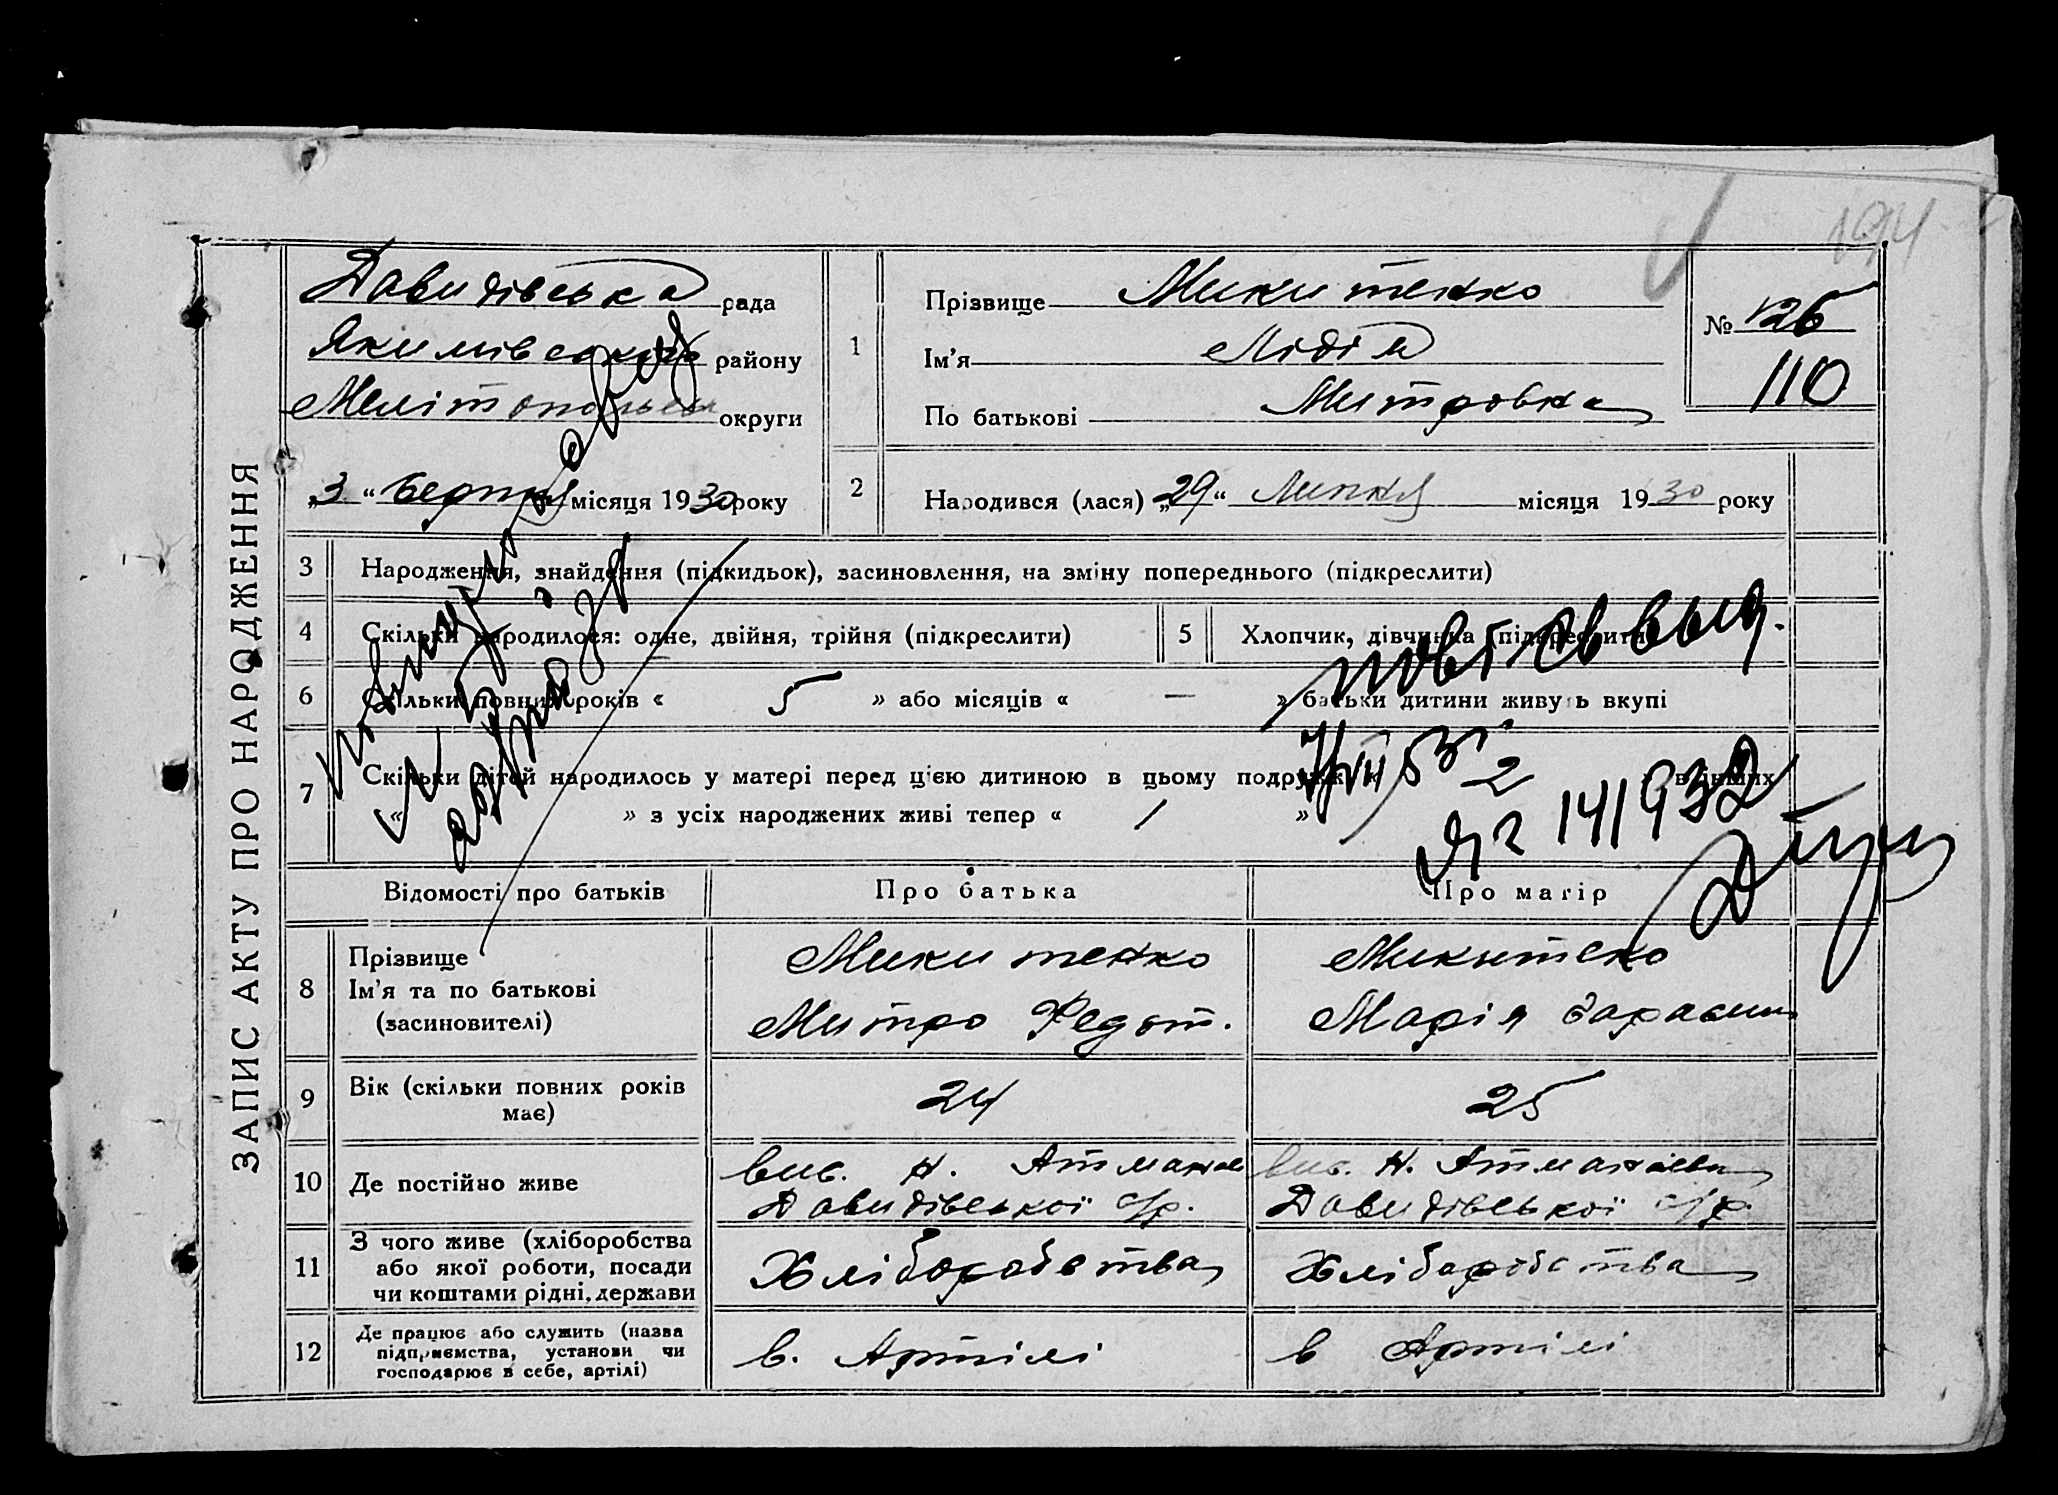 194
ЗАПИС АКТУ ПРО НАРОДЖЕННЯ
Давидівська рада
Якимівського району
Мелітопольськ округи
„3“ Серпня місяця 1930 року
1
Прізвище Микитенко
Ім'я Лідія
По батькові Митровна
№ 126
110
2
Народився (лася) „29“ Липня місяця 1930 року
3 Народження, знайдення (підкидьок), засиновлення, на зміну попереднього (підкреслити)
4 Скільки народилося: одне, двійня, трійня (підкреслити)
5 Хлопчик, дівчинка (підкреслити)
6 Скільки повних років « 5 » або місяців « — » батьки дитини живуть вкупі
7 Скільки дітей народилось у матері перед цією дитиною в цьому подружжі 2 в інших
« » з усіх народжених живі тепер « 1 »
141932
Відомості про батьків
Про батька
Про матір
8 Прізвище
Ім'я та по батькові
(засиновителі)
Микитенко
Митро Федот.
Микитенко
Марія
9 Вік (скільки повних років має)
24
25
10 Де постійно живе
вис. Н. Атманай
Давидівської с/р.
вис. Н. Атманаївка
Давидівської с/р.
11 З чого живе (хліборобства
або якої роботи, посади
чи коштами рідні, держави
Хліборобства
Хліборобства
12 Де працює або служить (назва
підприємства, установи чи
господарює в себе, артілі)
в. Артілі
в Артілі